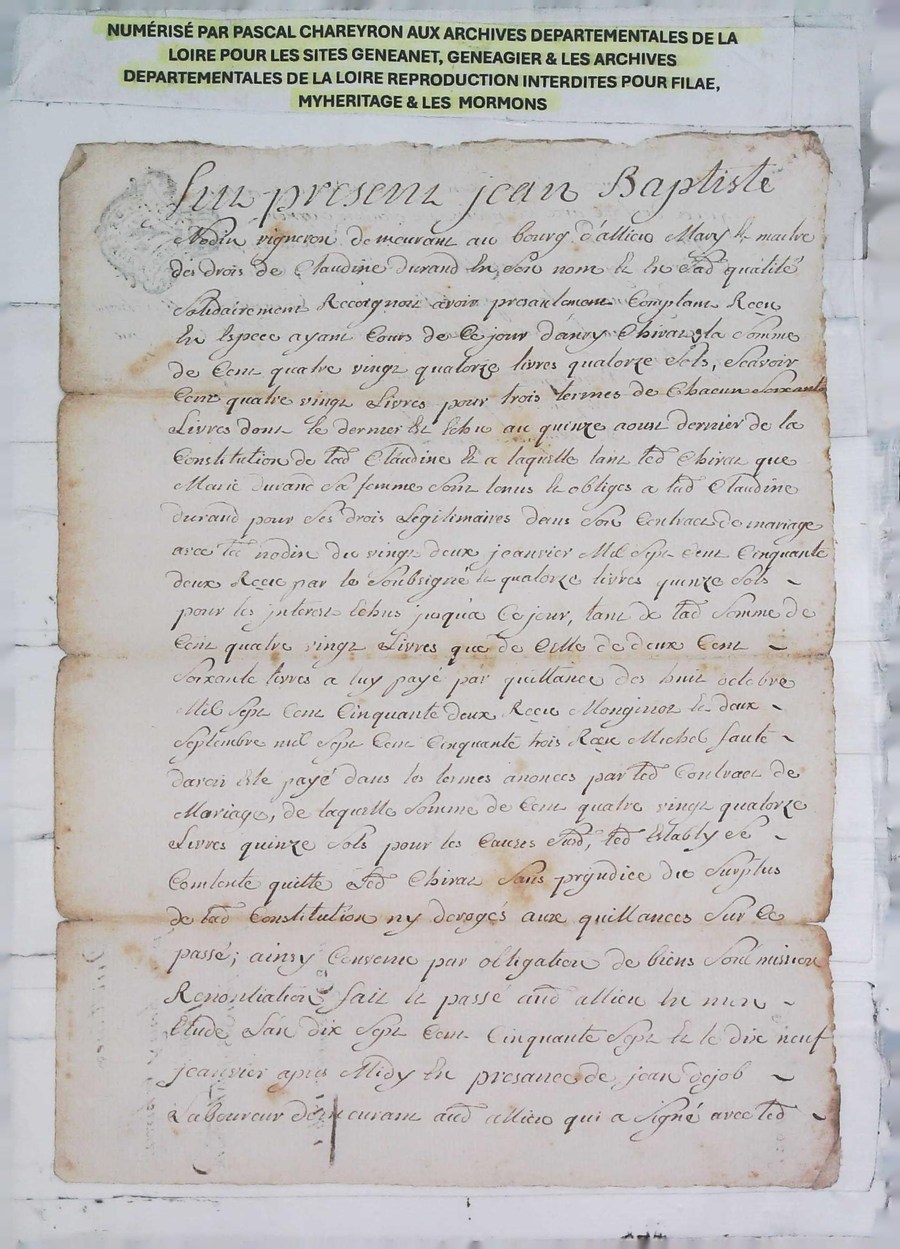 NUMÉRISÉ PAR PASCAL CHAREYRON AUX ARCHIVES DEPARTEMENTALES DE LA
LOIRE POUR LES SITES GENEANET, GENEAGIER & LES ARCHIVES
DEPARTEMENTALES DE LA LOIRE REPRODUCTION INTERDITES POUR FILAE,
MYHERITAGE & LES MORMONS
fut present jean Baptiste
Nodin vigneron demeurant au bourg d'allieu Mary et maitre
des drois de Claudine durand En Son nom et En lad qualité
Solidairement Recoignoit avoir presentement Comptant Receu
En Espece ayant Cours de Ce jour d'anry Chirat la Somme
de Cent quatre vingt quatorze livres quatorze Sols, Scavoir
Cent quatre vingt Livres pour trois termes de Chacun Soixante
Livres dont le dernier Est Echu au quinze aoust dernier de la
Constitution de lad Claudine Et a laquelle tant led Chirat que
Marie durand Sa femme Sont tenus et obliges a lad Claudine
durand pour Ses drois Legitimaires dans Son Contract de mariage
avec led nodin du vingt deux jeanvier Mil Sept Cent Cinquante
deux Receu par le Soubsigné et quatorze livres quinze Sols
pour les interest Echus jusqu'a Ce jour, tant de lad Somme de
Cent quatre vingt Livres que de Celle de deux Cent
Soixante livres a luy payé par quittance des huit octobre
Mil Sept Cent Cinquante deux Receu Monginot et deux
Septembre mil Sept Cent Cinquante trois Receu Michel faute
davoir Esté payé dans les termes anoncés par led Contract de
Mariage, de laquelle Somme de Cent quatre vingt quatorze
Livres quinze Sols pour les Causes Susd, led Estably Se
Contente quitte led Chirat Sans préjudice du Surplus
de lad Constitution ny derogés aux quittances Sur Ce
passé; ainsy Convenu par obligation de biens Soumission
Renontiation fait et passé aud allieu En mon
Etude L'an dix Sept Cent Cinquante Sept Et le dix neuf
jeanvier apres Midy En presance de jean dejob
Laboureur demeurant aud allieu qui a Signé avec led